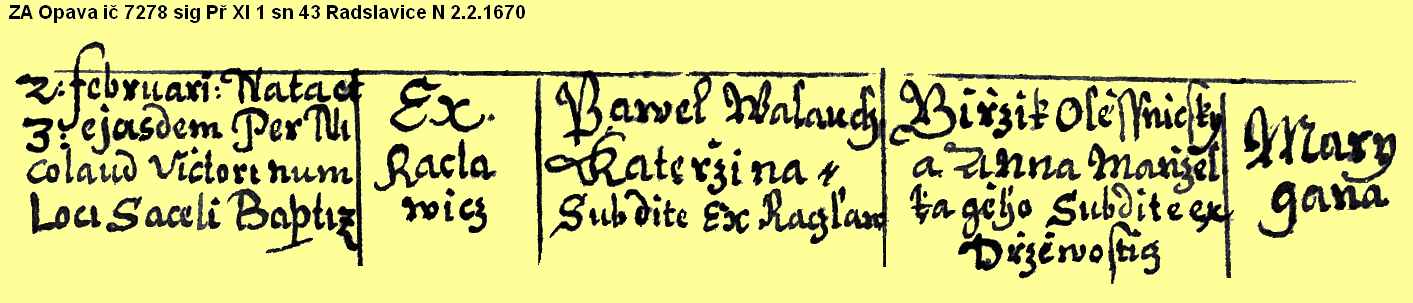 ZA Opava ič 7278 sig Př XI 1 sn 43 Radslavice N 2.2.1670
2. februari: Nata et
3: ejusdem Per Ni
colaud Victorinum
Loci Saceli Baptiz
Ex.
Racla
wicz
Pawel Walauch
Kateržina
Subdite Ex Raczlaw
Biržik Olessnicsky
a Anna Manžel
ka geho Subdite ex
Drževostig
Mary
gana